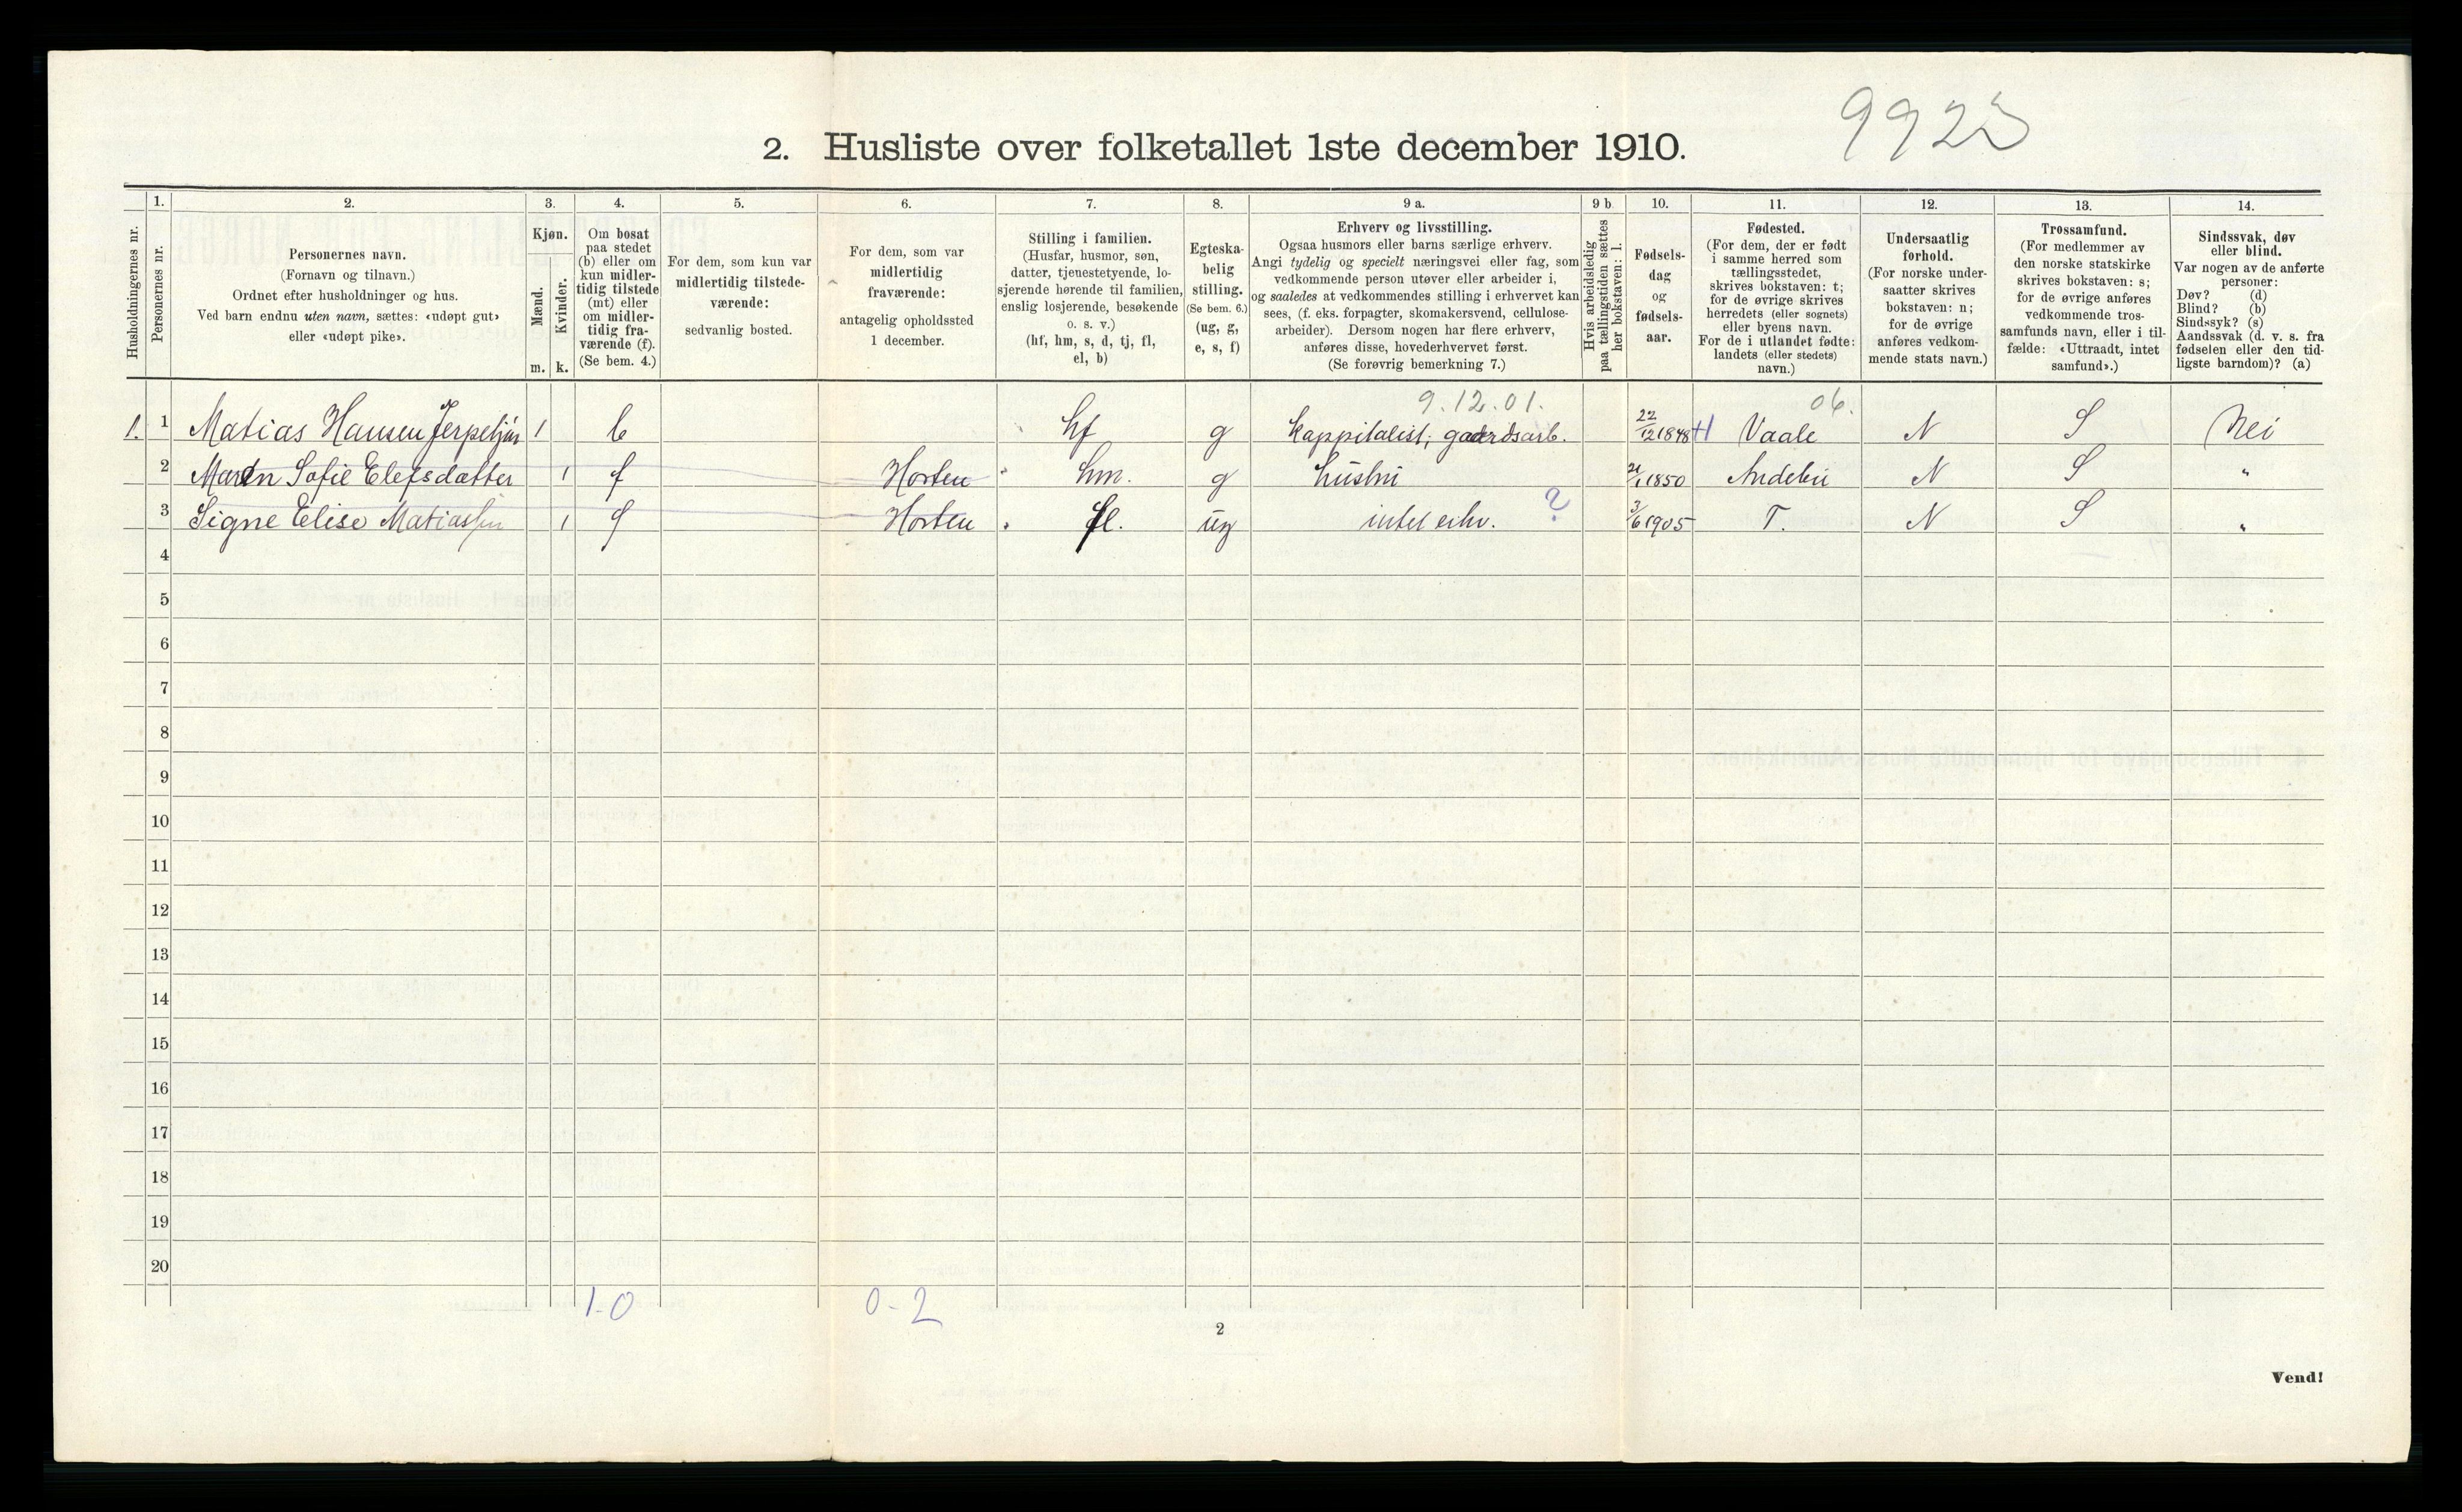 9923
2. Husliste over folketallet 1ste december 1910.
Husholdningernes nr.
1.
Personernes nr.
2.
Personernes navn.
(Fornavn og tilnavn.)
Ordnet efter husholdninger og hus.
Ved barn endnu uten navn, sættes: «udøpt gut»
eller «udøpt pike».
3.
Kjøn.
Mænd.
Kvinder.
m. k.
4.
Om bosat
paa stedet
(b) eller om
kun midler-
tidig tilstede
(mt) eller
om midler-
tidig fra-
værende (f).
(Se bem. 4.)
5.
For dem, som kun var
midlertidig tilstede-
værende:
sedvanlig bosted.
6.
For dem, som var
midlertidig
fraværende:
antagelig opholdssted
1 december.
7.
Stilling i familien.
(Husfar, husmor, søn,
datter, tjenestetyende, lo-
sjerende hørende til familien,
enslig losjerende, besøkende
o. s. v.)
(hf, hm, s, d, tj, fl,
el, b)
8.
Egteska-
belig
stilling.
(Se bem. 6.)
(ug, g,
e, s, f)
9 a.
Erhverv og livsstilling.
Ogsaa husmors eller barns særlige erhverv.
Angi tydelig og specielt næringsvei eller fag, som
vedkommende person utøver eller arbeider i,
og saaledes at vedkommendes stilling i erhvervet kan
sees, (f. eks. forpagter, skomakersvend, cellulose-
arbeider). Dersom nogen har flere erhverv,
anføres disse, hovederhvervet først.
(Se forøvrig bemerkning 7.)
9 b
Hvis arbeidsledig
paa tællingstiden sættes
her bokstaven: l.
10.
Fødsels-
dag
og
fødsels-
aar.
11.
Fødested.
(For dem, der er født
i samme herred som
tællingsstedet,
skrives bokstaven: t;
for de øvrige skrives
herredets (eller sognets)
eller byens navn.
For de i utlandet fødte:
landets (eller stedets)
navn.)
12.
Undersaatlig
forhold.
(For norske under-
saatter skrives
bokstaven: n;
for de øvrige
anføres vedkom-
mende stats navn.)
13.
Trossamfund.
(For medlemmer av
den norske statskirke
skrives bokstaven: s;
for de øvrige anføres
vedkommende tros-
samfunds navn, eller i til-
fælde: «Uttraadt, intet
samfund».)
14.
Sindssvak, døv
eller blind.
Var nogen av de anførte
personer:
Døv? (d)
Blind? (b)
Sindssyk? (s)
Aandssvak (d. v. s. fra
fødselen eller den tid-
ligste barndom)? (a)
9.12.01. 06.
1. 1 Matias Hansen 1 b hf g kappitalist; 22/12 1848 Vaale N S Nei
2 Maren Sofie Elefsdatter 1 f Horten hm. g hustru 1850 Andebu N S "
3 Signe Elise 1 f Horten fl. ug intet erhv. ? 3/6 1905 T. N S "
4
5
6
7
8
9
10
11
12
13
14
15
16
17
18
19
20
1-0 0-2
2
Vend!